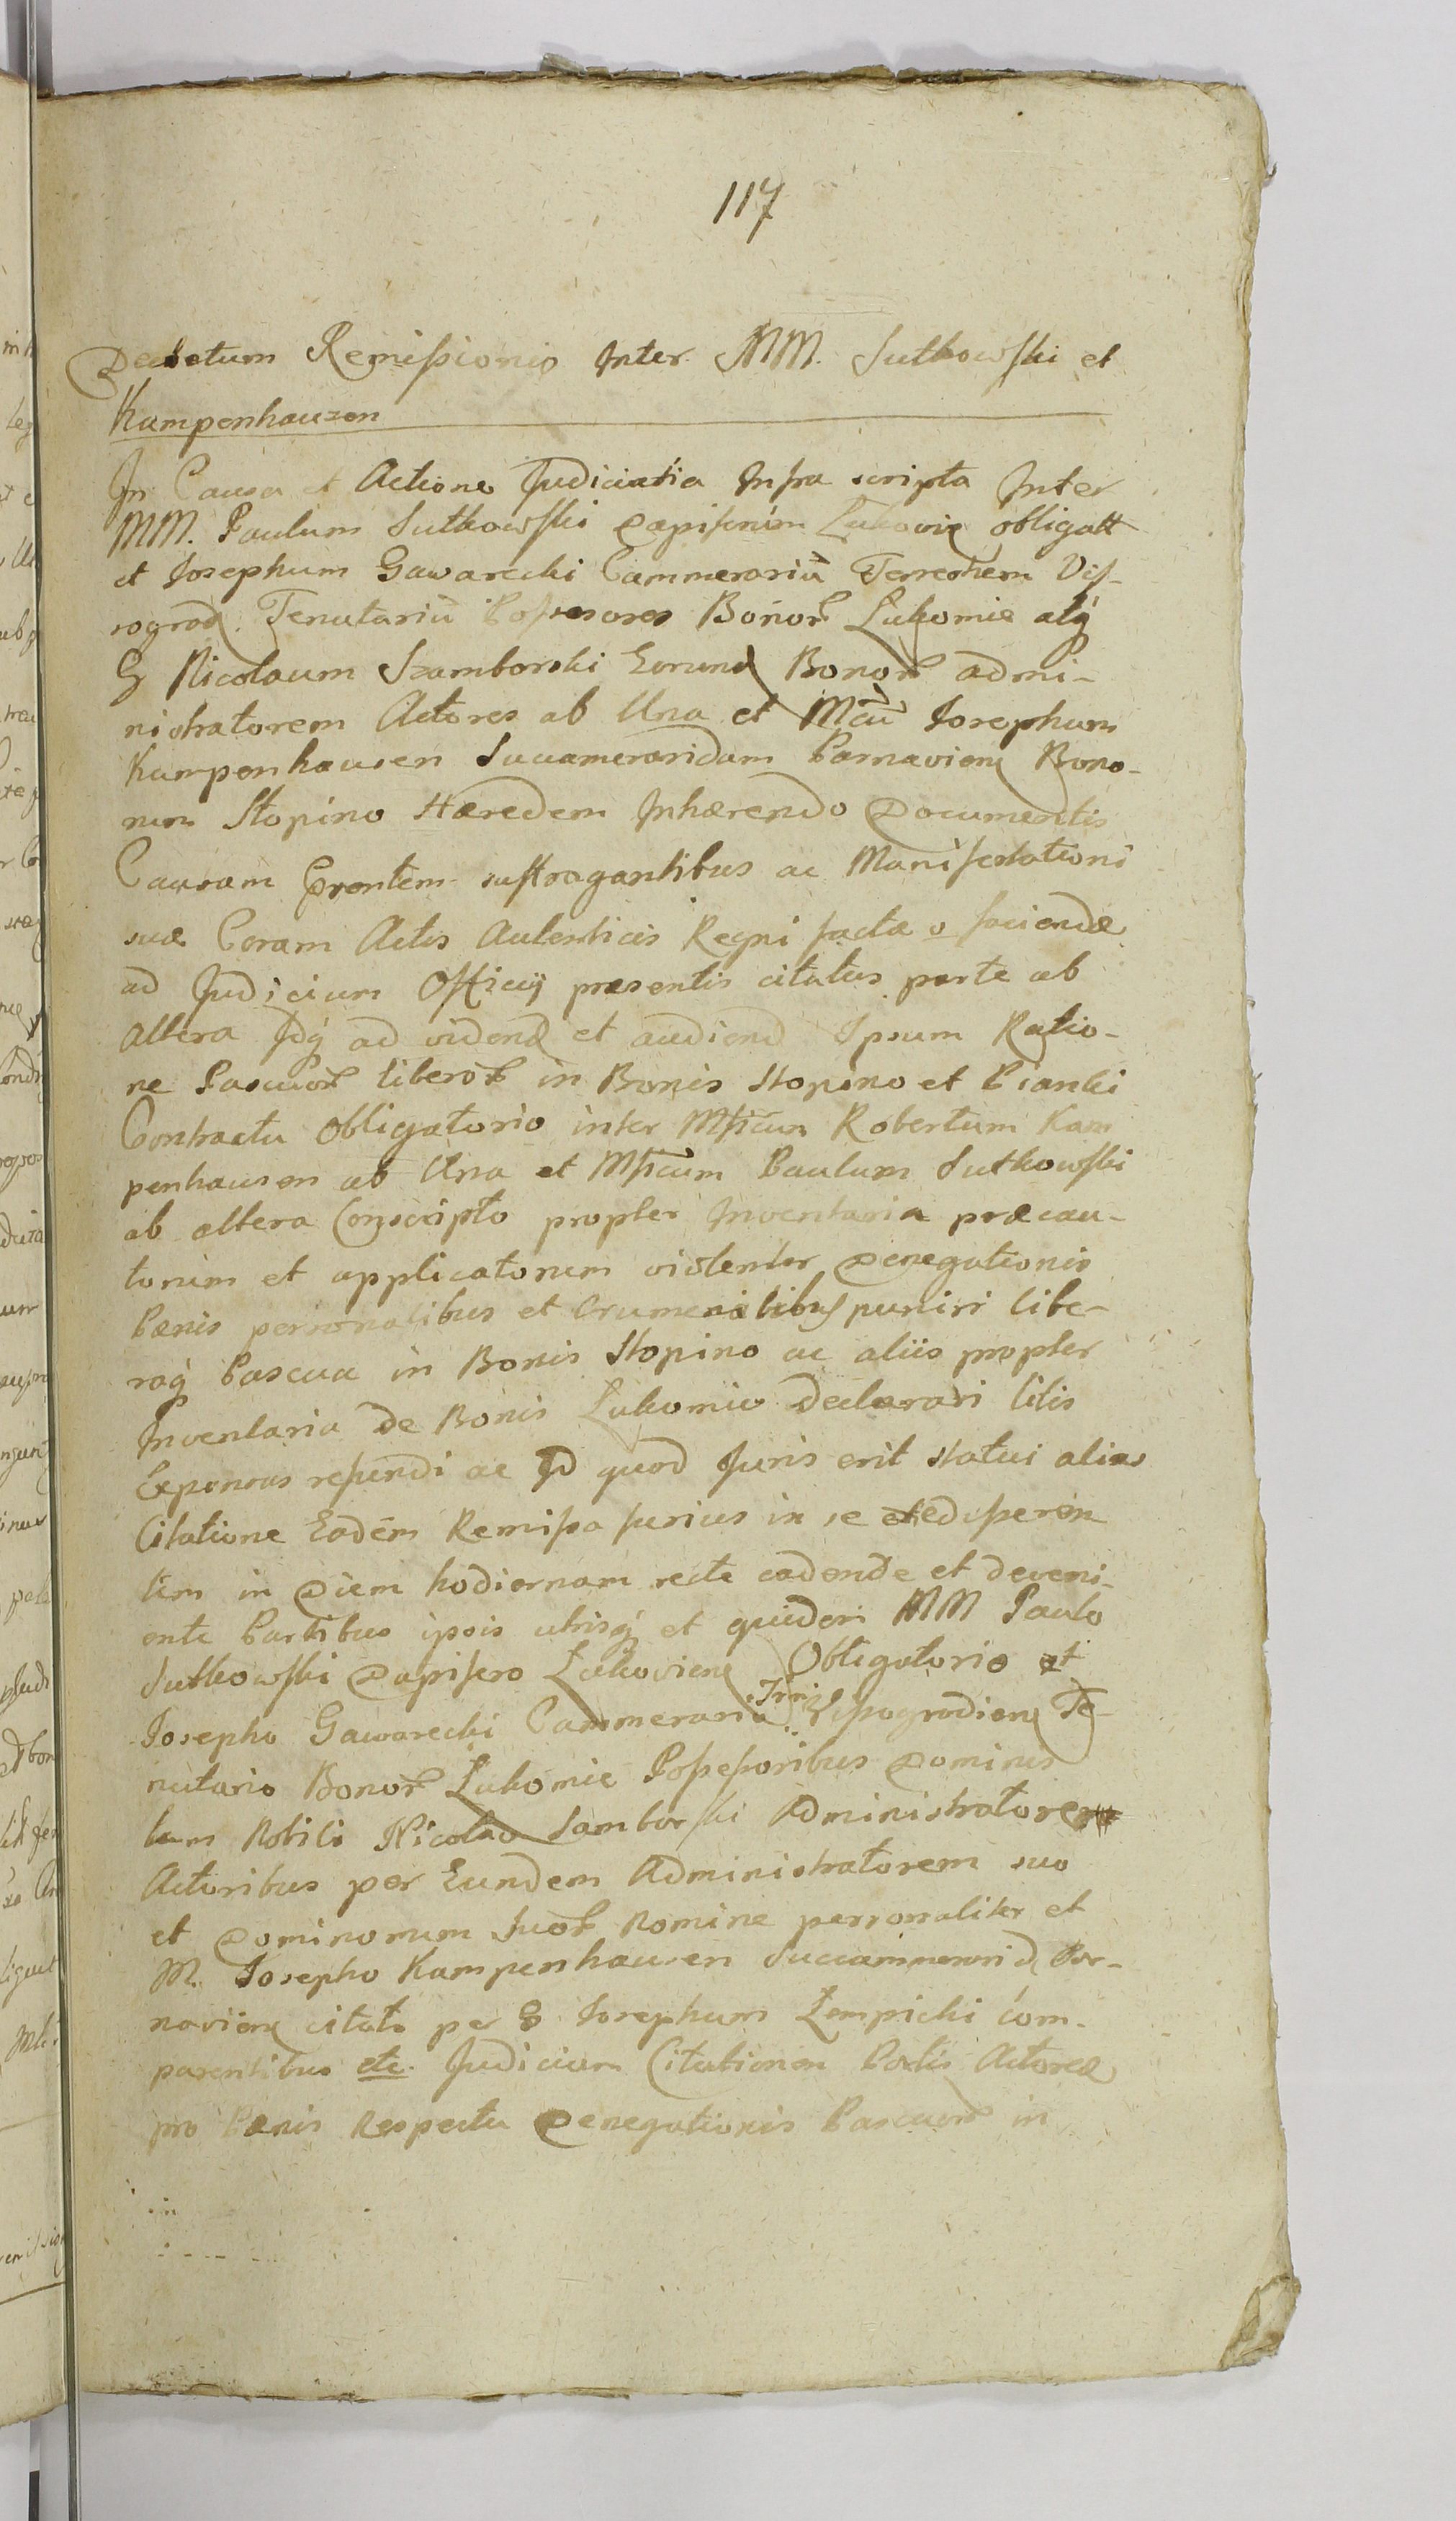 117
Decretum Remissionis Inter MM. Sutkowski et
Kampenhauzen
In Causa et Actione Judiciaria Infra scripta Inter
MM. Paulum Sutkowski Dapiferum Lukovien obligatt
et Josephum Gawarecki Cammerariũ Terrestrem Vis-
sogrod. Tenutariũ Possesores Bonor Lukomie atq
G Nicolaum Szamborski Eorund Bonor admi-
nistratorem Actores ab Una et Mcũ Josephum
Kampenhausen Succameraridam Parnavien Bono-
rum Stopino Hæredem Inhærendo Documentis
Causam prentem suffragantibus ac Manifestationi
suæ Coram Actis Autenticis Regni factæ v faciendæ
ad Judicium Officij præsentis citatus parte ab
altera Idq ad vidend et audiend Ipsum Ratio-
ne Pascuor liberor in Bonis Stopino et Pianki
Contractu Obligatorio inter Mficum Robertum Kam
penhausen ab Una et Mficum Paulum Sutkowski
ab altera Conscripto propter Inventaria præcau-
torum et applicatorum violenter Denegationis
Pænis personalibus et Crumenalibus puniri libe-
raq Pascua in Bonis Stopino ac aliis propter
Inventaria de Bonis Lukomie declarari litis
Expensas refundi ac Id quod Juris erit statui alias
Citatione Eadem Remissa furius in se
tem in Diem hodiernam recte cadende et deveni-
ente Partibus ipsis utrisq et quidem MM Paulo
Sutkowski Dapifero Lukovien Obligatorio et
Josepho Gawarecki Cammerario Trri Vissogrodien Te-
nutario Bonor Lukomie Possessoribus Dominis
tum Nobili Nicolao Samborski Administratore
Actoribus per Eundem Administratorem suo
et Dominorum suor Nomine personaliter et
M. Josepho Kampenhausen Succammerarid Par-
navien citato per G Josephum Lempicki com-
parentibus etc. Judicium Citationem Partis Actoreæ
pro Pænis Respectu Denegationis Pascuor in